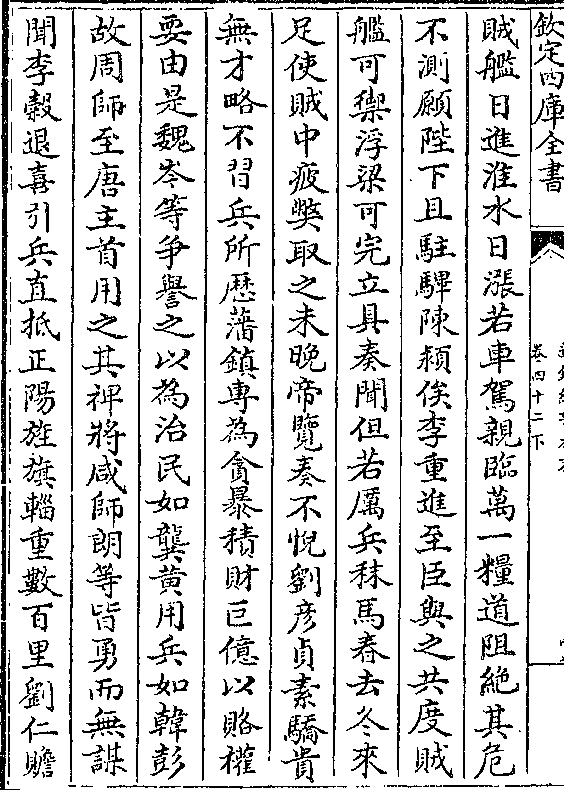 欽定四庫全書
卷四十二下
賊艦日進淮水日漲若車駕親臨萬一糧道阻絶其危
不測願陛下且駐驆陳潁俟李重進至臣與之共度賊
艦可禦浮梁可完立具奏聞但若厲兵秣馬春去冬來
足使賊中疲獘取之未晚帝覽奏不悅劉彥貞素驕貴
無才略不習兵所歴藩鎮專為貪暴積財巨億以賂權
要由是魏岑等爭譽之以為治民如龔黄用兵如韓彭
故周師至唐主首用之其裨將咸師朗等皆勇而無謀
聞李榖退喜引兵直抵正陽旌旗輜重數百里劉仁贍